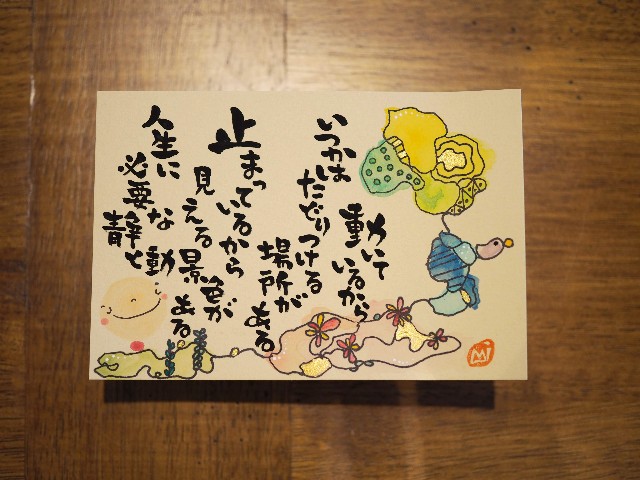 動いて
いるから
いつかは
たどりつける
場所が
ある
止まって
いるから
見える景色が
ある
人生に
必要な
静と動